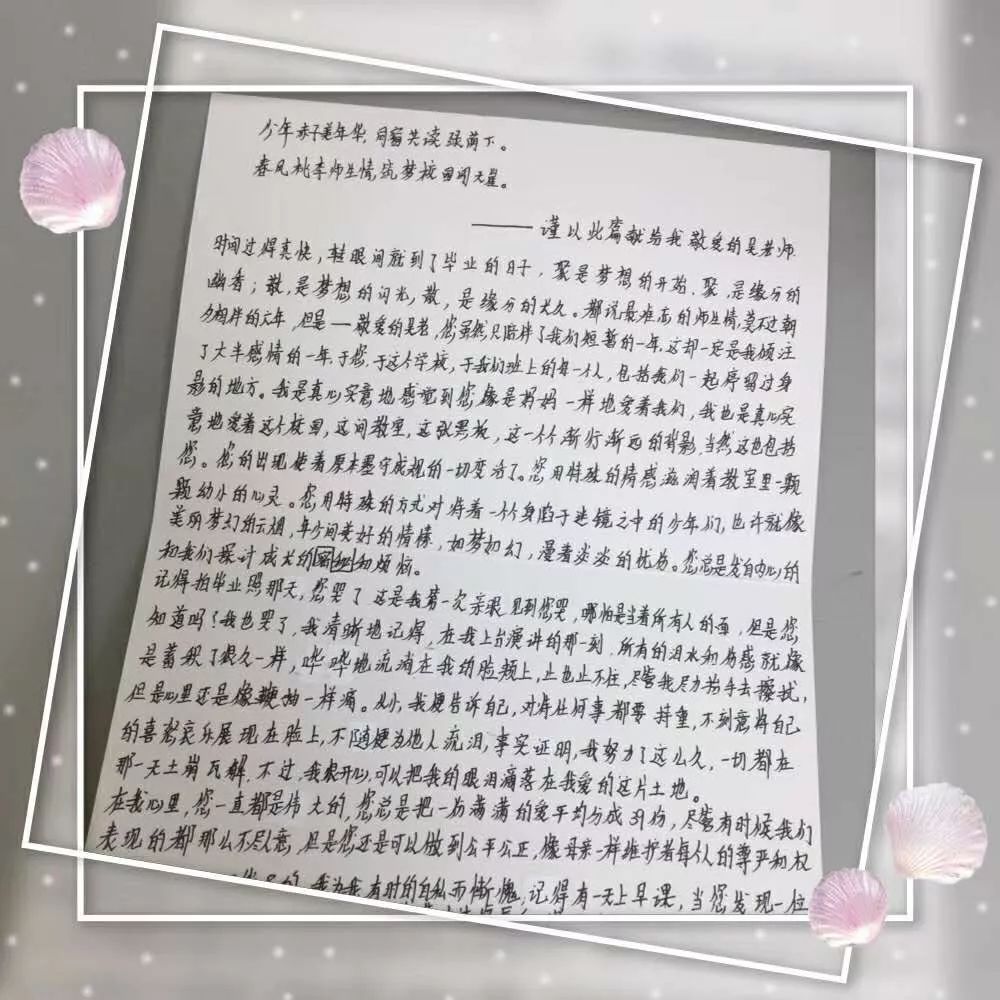 少年赤子美年华,同窗共读绿荫下。
春风桃李师生情,筑梦校园闯天涯。
——谨以此篇献给我敬爱的吴老师
时间过得真快,转眼间就到了毕业的日子,聚是梦想的开始,聚,是缘分的
幽香;散,是梦想的闪光,散,是缘分的长久。都说最难忘的师生情,莫不过朝
夕相伴的六年,但是——敬爱的吴老,您虽然只陪伴了我们短暂的一年,这却一定是我倾注
了大半感情的一年,于您,于这个学校,于我们班上的每一个人,包括我们一起停留过身
影的地方。我是真心实意地感觉到您像是妈妈一样地爱着我们,我也是真心实
意地爱着这个校园,这间教室,这张黑板,这一个个渐行渐远的背影,当然这也包括
您。您的出现使着原本墨守成规的一切变活了。您用特殊的情感滋润着教室里一颗
颗幼小的心灵。您用特殊的方式对待着一个个身陷于迷镜之中的少年们,也许就像
美丽梦幻的云烟,年少间美好的情愫,如梦如幻,漫着淡淡的忧伤。您总是发自内心的
和我们探讨成长的和烦恼。
记得拍毕业照那天,您哭了 这是我第一次亲眼见到您哭,哪怕是当着所有人的面,但是您
知道吗?我也哭了,我清晰地记得,在我上台演讲的那一刻,所有的泪水和伤感就像
是蓄积了很久一样,哗哗地流淌在我的脸颊上,止也止不住,尽管我尽力扬手去擦拭,
但是心里还是像鞭抽一样痛。从小,我便告诉自己,对待任何事都要持重,不刻意将自己
的喜怒哀乐展现在脸上,不随便为他人流泪,事实证明,我努力了这么久,一切都在
那一天土崩瓦解,不过,我很开心,可以把我的眼泪滴落在我爱的这片土地。
在我心里,您一直都是伟大的,您总是把一份满满的爱平均分成39份,尽管有时候我们
表现的都那么不尽意,但是您还是可以做到公平公正,像母亲一样维护着每个人的尊严和权
我为我有时的自私而惭愧,记得有一天上早课,当您发现一位